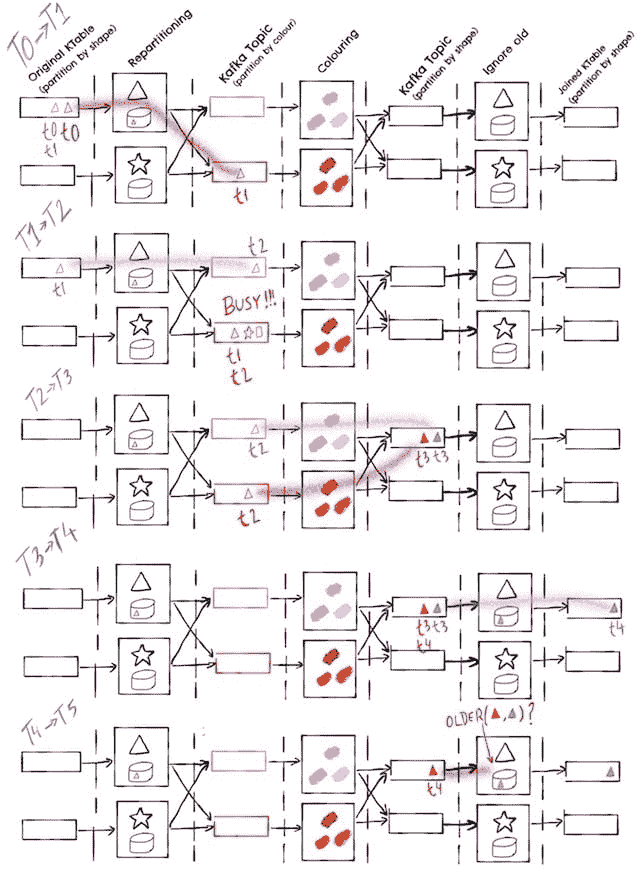 T0→T1
Original KTable
(partition by shape)
Repartitioning
Kafka Topic
(partition by colour)
Colouring
Kafka Topic
(partition by shape)
Ignore old
Joined KTable
(partition by shape)
t0 t0
t1
t1
T1→T2
t1
t2
BUSY!!!
t1
t2
T2→T3
t2
t3 t3
t2
T3→T4
t3 t3
t4
t4
T4→T5
OLDER(▲,▲)?
t4